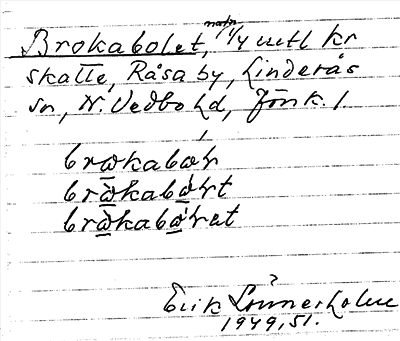 Brokabolet, 1/4 mtl kr
skatte, Råsa by, Linderås
sn, N. Vedbo hd, Jönk. l
brωkabωł
brωkabωłt
brωkabωłət
Erik Lönnerholm
1949, 51.